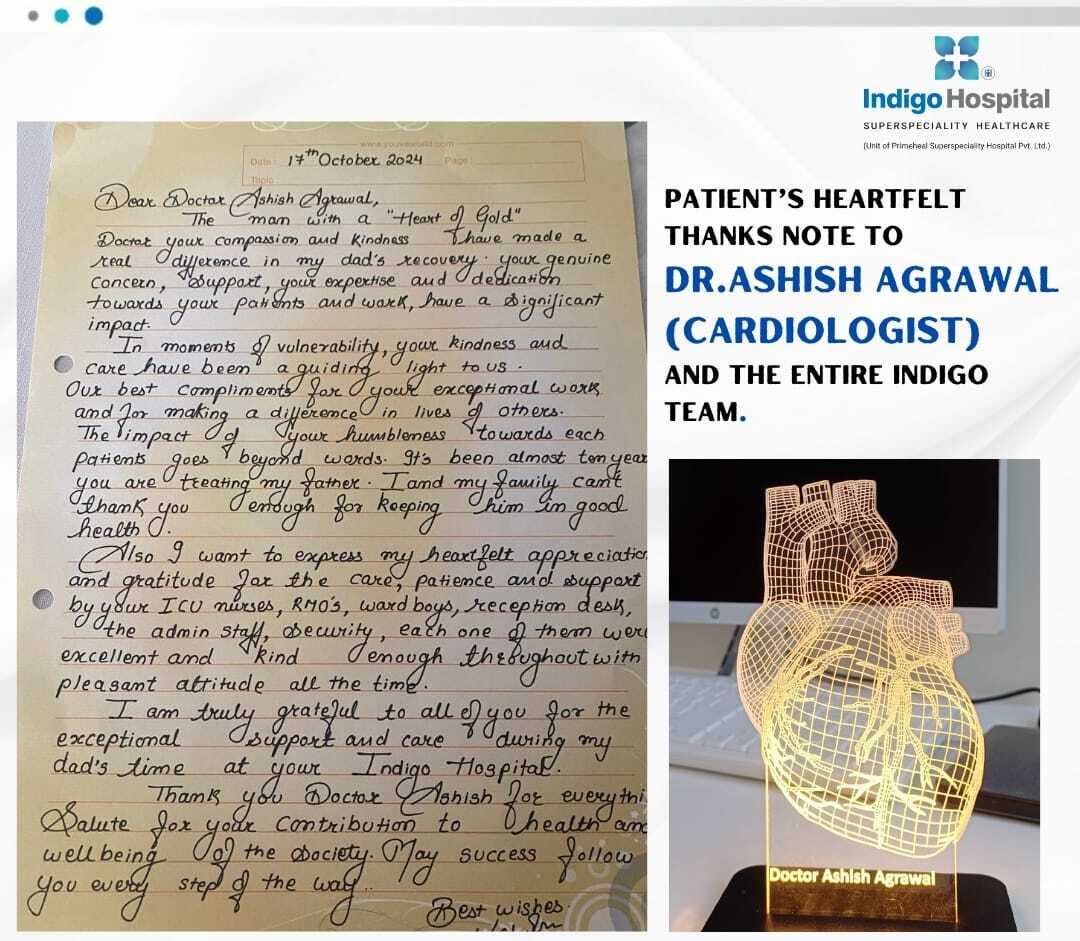 Indigo Hospital
SUPERSPECIALITY HEALTHCARE
(Unit of Primeheal Superspeciality Hospital Pvt. Ltd.)
PATIENT'S HEARTFELT
THANKS NOTE TO
DR.ASHISH AGRAWAL
(CARDIOLOGIST)
AND THE ENTIRE INDIGO
TEAM.
Date: 17th October 2024 Page
Topic
Dear Doctor Ashish Agrawal,
The man with a "Heart of Gold"
Doctor your compassion and kindness have made a
real difference in my dad's recovery. your genuine
concern, support, your expertise and dedication
towards your patients and work, have a significant
impact.
In moments of vulnerability, your kindness and
care have been a guiding light to us.
Our best compliments for your exceptional work
and for making a difference in lives of others.
The impact of your humbleness towards each
patients goes beyond words. It's been almost ten year
you are treating my father. I and my family can't
thank you enough for keeping him in good
health.
Also I want to express my heartfelt appreciatio
and gratitude for the care, patience and support
by your ICU nurses, RMO's, ward boys, reception desk,
the admin staff, security, each one of them wer
excellent and kind enough throughout with
pleasant attitude all the time.
I am truly grateful to all of you for the
exceptional support and care during my
dad's time at your Indigo Hospital.
Thank you Doctor Ashish for everythi
Salute for your contribution to health an
wellbeing of the society. May success follow
you every step of the way..
Best wishes.
hp
Doctor Ashish Agrawal